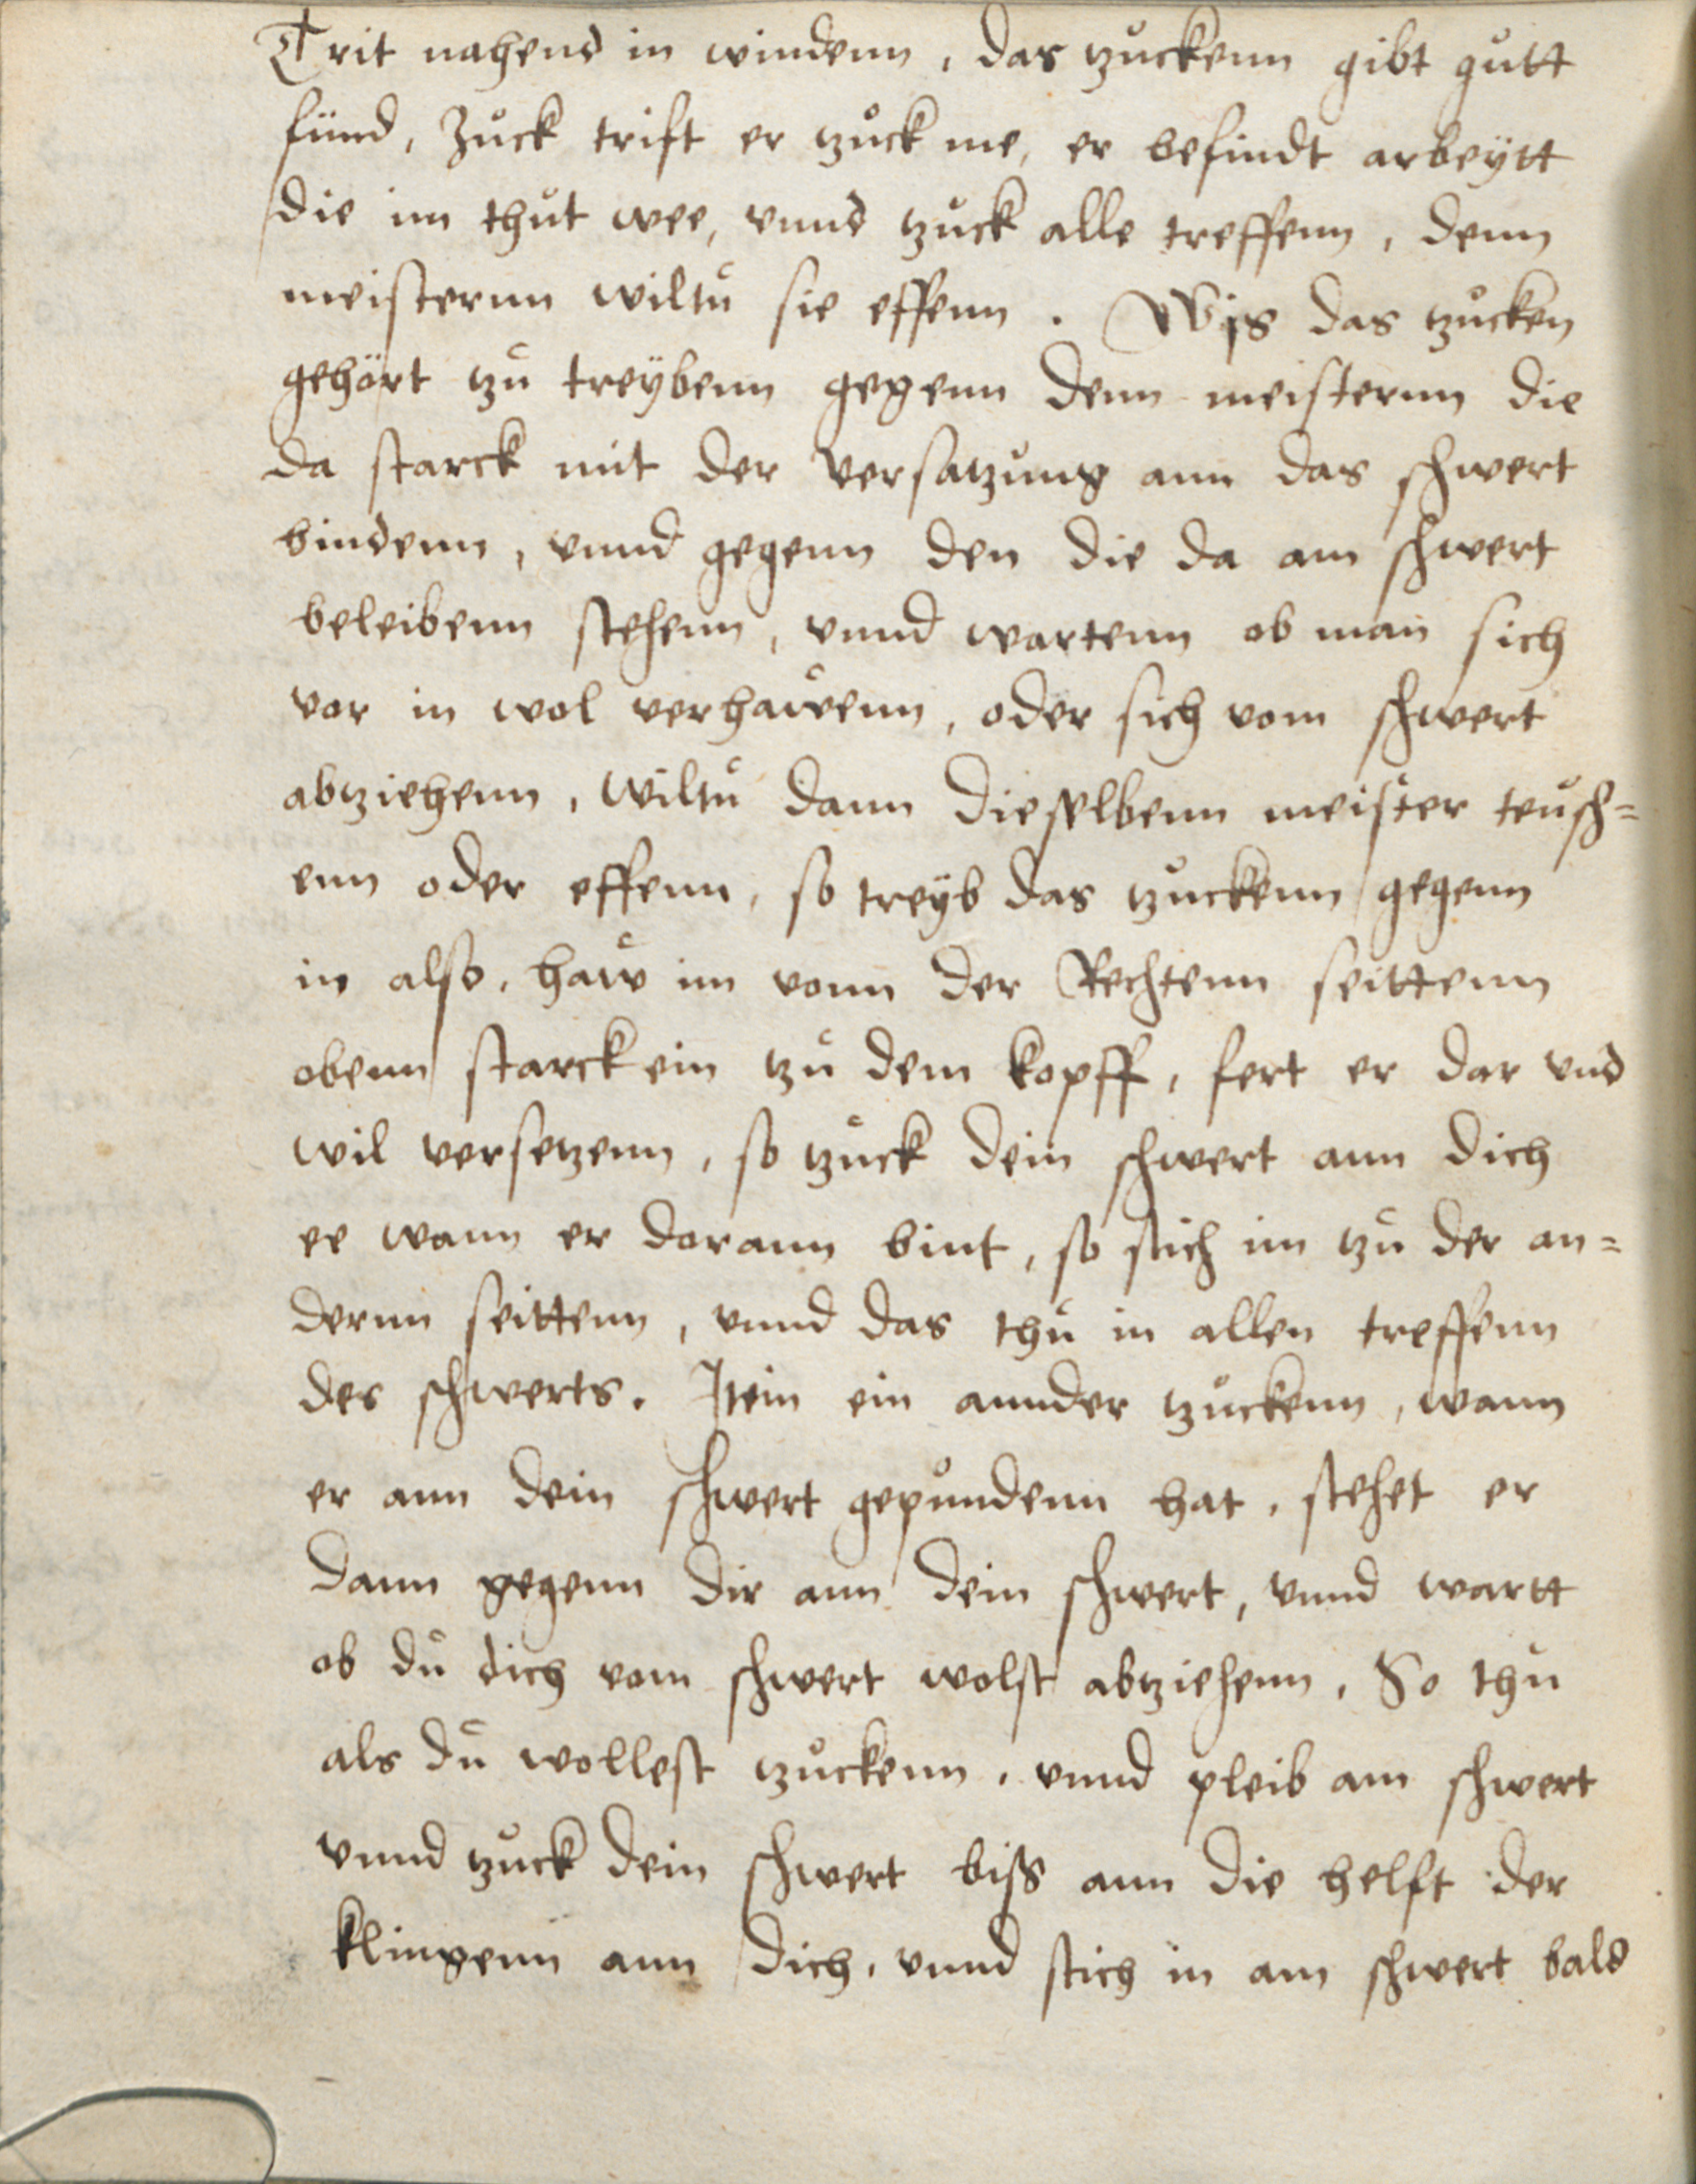 Trit nahend in windenn, das tzuckenn gibt gůtt
fünd, Zůck trift er tzůck me, er befindt arbeÿtt
die im thůt wee, vnnd tzůck alle treffenn, denn
meisternn wiltů sie effenn. Wÿs das tzůcken
gehört tzů treÿbenn gegenn denn meisternn die
da starck mit der versatzůng ann das schwert
bindenn, vnnd gegenn den die da am schwert
beleibenn stehenn, vnnd wartenn ob man sich
vor in wol verhaẘenn, oder sich vom schwert
abtziehenn, wiltů dann dieselbenn meister teůsch=
enn oder effenn, so treÿb das tzůckenn gegenn
in also, haẘ im vonn der Rechtenn seittenn
obenn starck ein tzů dem kopff, fert er dar vnd
wil versetzenn, so tzůck dein schwert ann dich
ee wann er darann bint, so stich im tzů der an=
dernn seittenn, vnnd das thů in allen treffenn
des schwerts. Item ein annder tzůckenn, wann
er ann dein schwert gepůndenn hat, stehet er
dann gegenn dir ann dein schwert, vnnd wartt
ob dů dich vom schwert wolst abtziehenn, So thů
als dů wollest tzůckenn, vnnd pleib am schwert
vnnd tzůck dein schwert biſs ann die helft der
klingenn ann dich, vnnd stich in am schwert bald